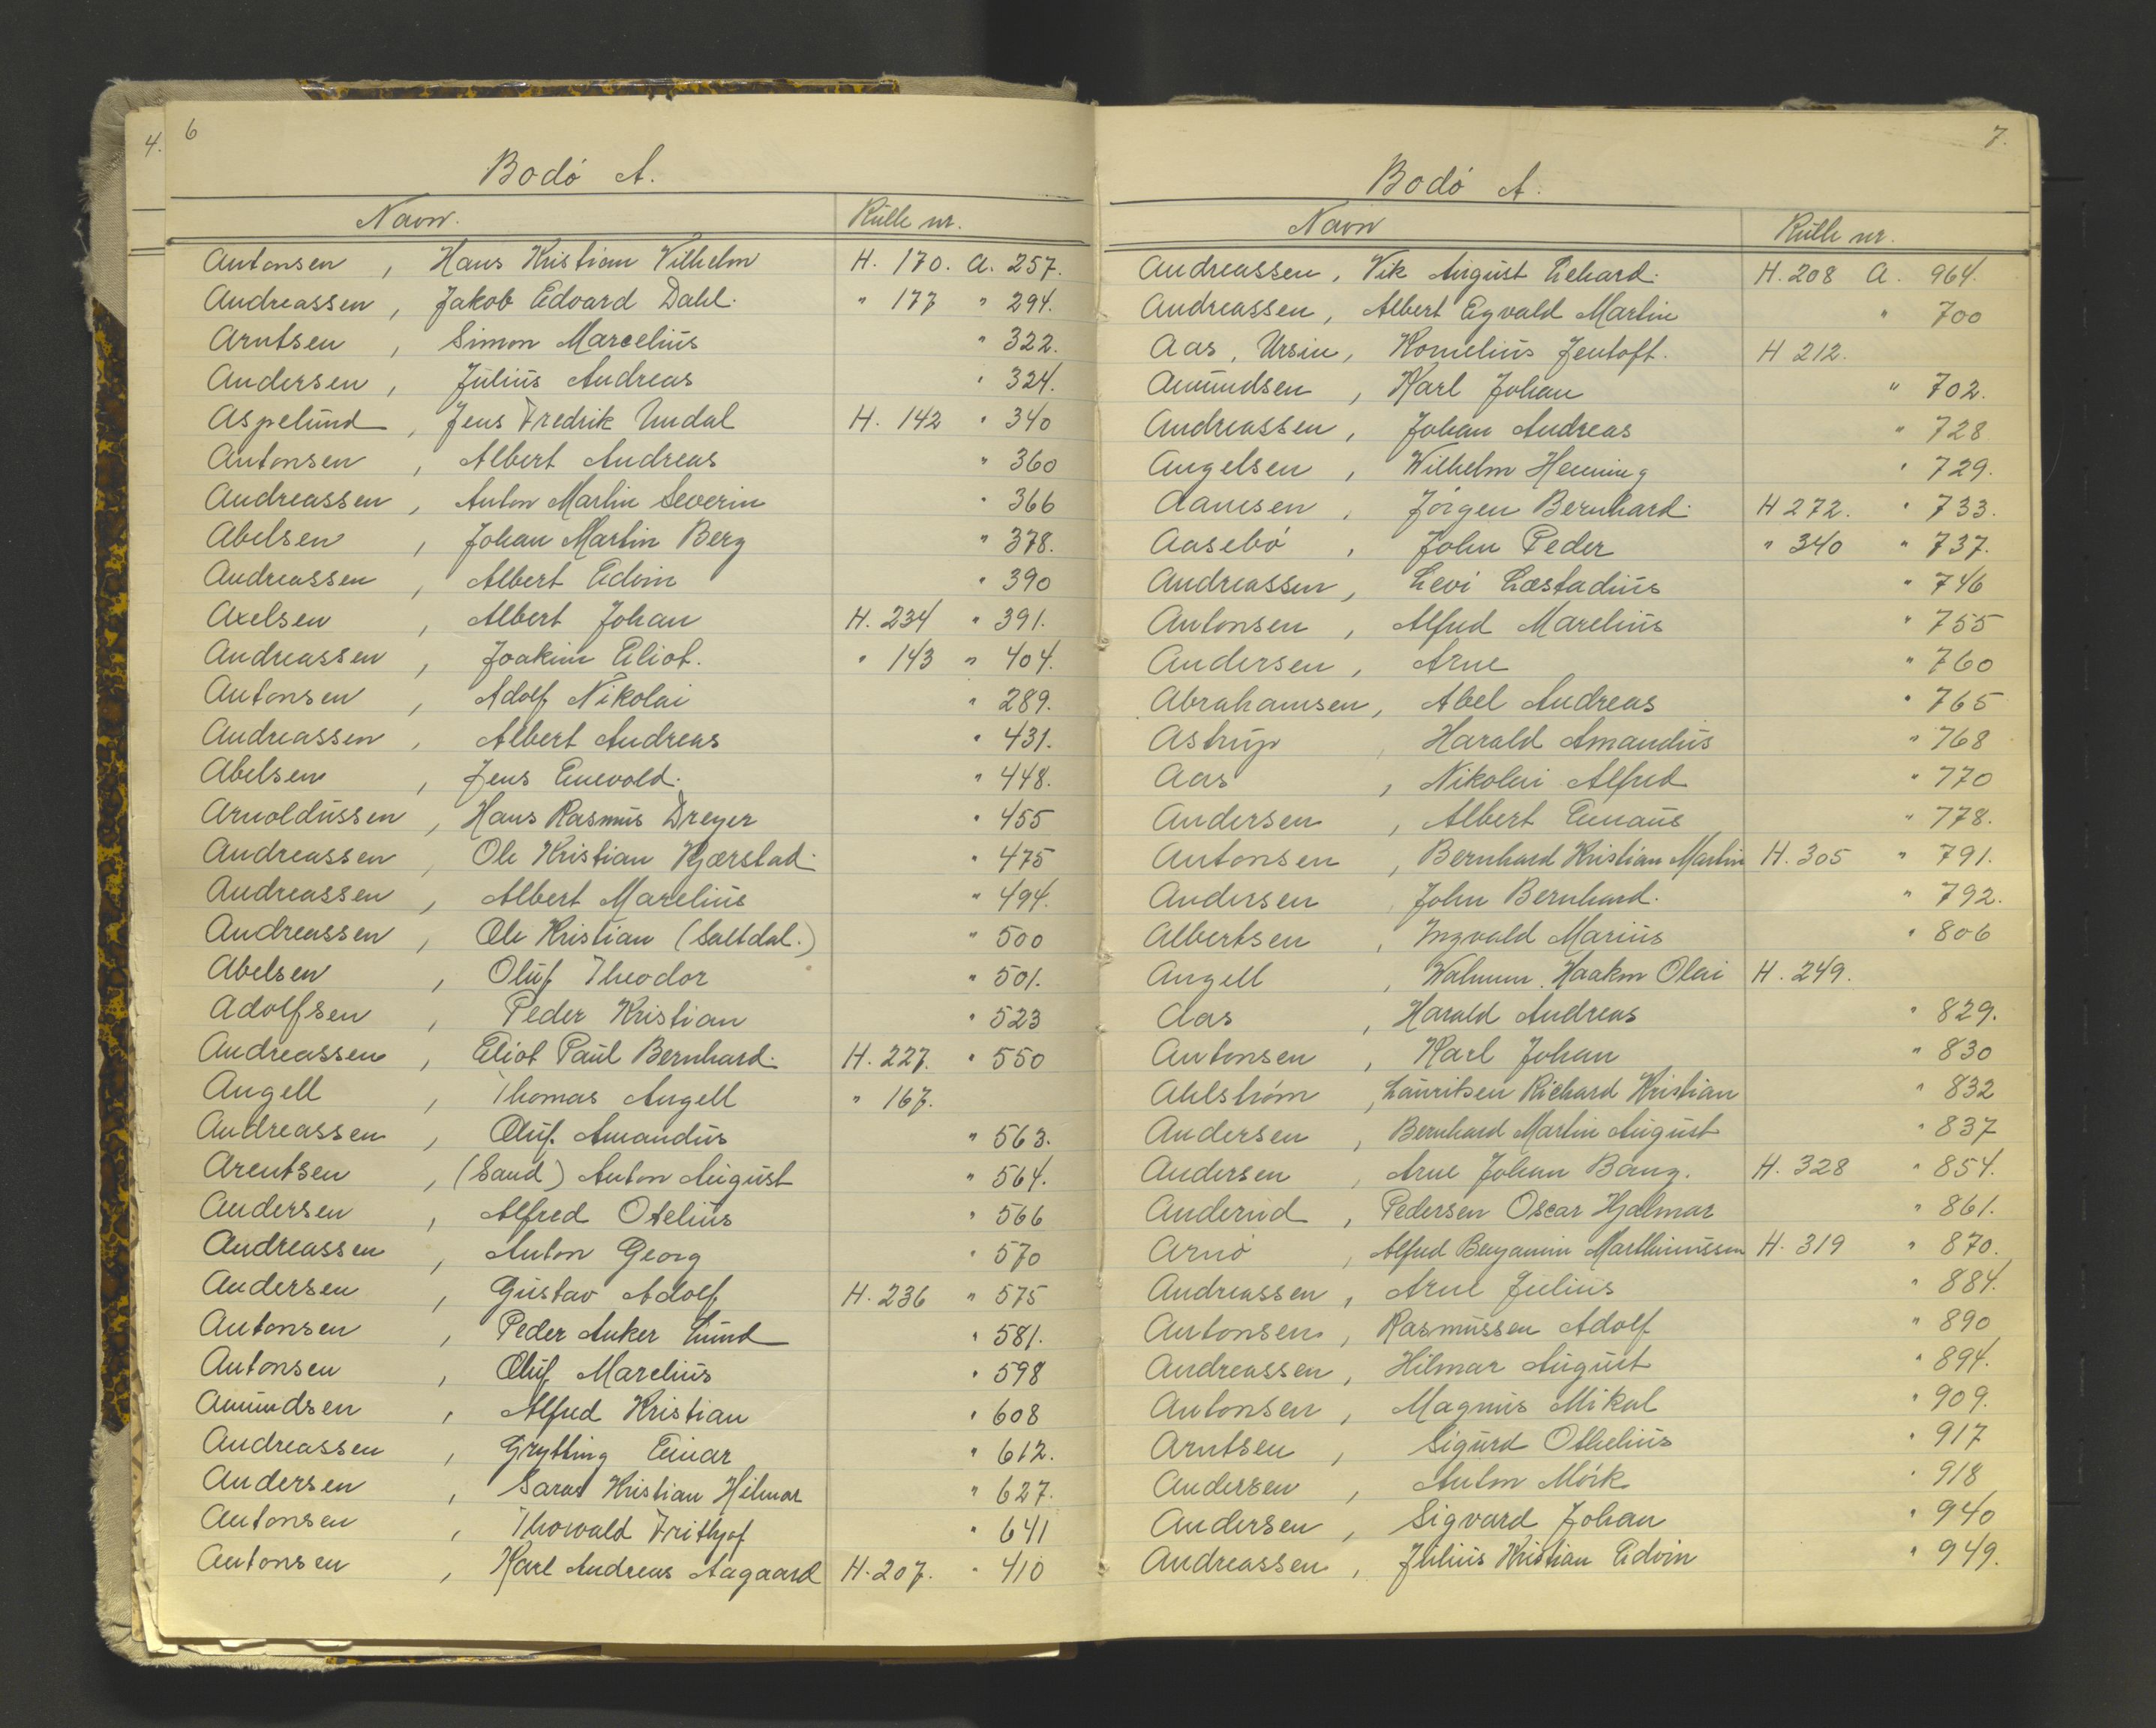 4.
6
Bodó A.
Navn. Rulle nr.
Antonsen, Hans Kristian Vilhelm H. 170. A. 257.
Andreassen, Jakob Edvard Dahl. " 177 " 294.
Arntsen, Simon Marcelius " 322.
Andersen, Julius Andreas " 324.
Aspelund, Jens Fredrik Undal H. 142 " 340
Antonsen, Albert Andreas " 360
Andreassen, Anton Martin Severin " 366
Abelsen, Johan Martin Berg " 378.
Andreassen, Albert Edvin " 390
Axelsen, Albert Johan H. 234 " 391.
Andreassen, Joakim Eliot. " 143 " 404.
Antonsen, Adolf Nikolai " 289.
Andreassen, Albert Andreas " 431.
Abelsen, Jens Enevold. " 448.
Arnoldussen, Hans Rasmus Dreyer " 455
Andreassen, Ole Kristian Kjærstad. " 475
Andreassen, Albert Marelius " 494.
Andreassen, Ole Kristian (Saltdal.) " 500
Abelsen, Oluf Theodor " 501.
Adolfsen, Peder Kristian " 523
Andreassen, Eliot Paul Bernhard. H. 227. " 550
Angell, Thomas Angell " 167.
Andreassen, Oluf. Amandus " 563.
Arentsen, (Sand) Anton August " 564.
Andersen, Alfred Otelius " 566
Andreassen, Anton Georg " 570
Andersen, Gustav Adolf H. 236 " 575
Antonsen, Peder Anker Lund " 581.
Antonsen, Oluf Marelius " 598
Amundsen, Alfred Kristian " 608
Andreassen, Grytting Einar " 612.
Andersen, Kristian Hilmar " 627.
Antonsen, Thorvald Frithjof " 641
Antonsen, Karl Andreas Aagaard H. 207. " 410
7.
Bodó A.
Navn Rulle nr.
Andreassen, Vik August Lehard. H. 208 A. 964.
Andreassen, Albert Egvald Martin " 700
Aas, Ursin, Kornelius Jentoft. H 212.
Amundsen, Karl Johan " 702.
Andreassen, Johan Andreas " 728
Angelsen, Wilhelm Henning " 729.
Aanesen, Jörgen Bernhard. H 272. " 733.
Aasebó, John Peder " 340 " 737.
Andreassen, Levi Læstadius " 746
Antonsen, Alfred Marelius " 755
Andersen, Arne " 760
Abrahamsen, Abel Andreas " 765
Astrup, Harald Amandus " 768
Aas, Nikolai Alfred " 770
Andersen, Albert Emaus " 778.
Antonsen, Bernhard Kristian Martin H. 305 " 791.
Andersen, John Bernhard. " 792.
Albertsen, Ingvald Marius " 806
Angell, Walnum. Haakon Olai H. 249.
Aas, Harald Andreas " 829.
Antonsen, Karl Johan " 830
Ahlström, Lauritsen Richard Kristian " 832
Andersen, Bernhard Martin August " 837
Andersen, Arne Johan Bang. H. 328 " 854.
Anderud, Pedersen Oscar Hjalmar " 861.
Arnó, Alfred Benjamin Marthinussen H. 319 " 870.
Andreassen, Arne Julius " 884.
Antonsen, Rasmussen Adolf " 890
Andreassen, Hilmar August " 894.
Antonsen, Magnus Mikal " 909.
Arntsen, Sigurd Othelius " 917
Andersen, Anton Mörk " 918
Andersen, Sigvard Johan " 940
Andreassen, Julius Kristian Edvin " 949.